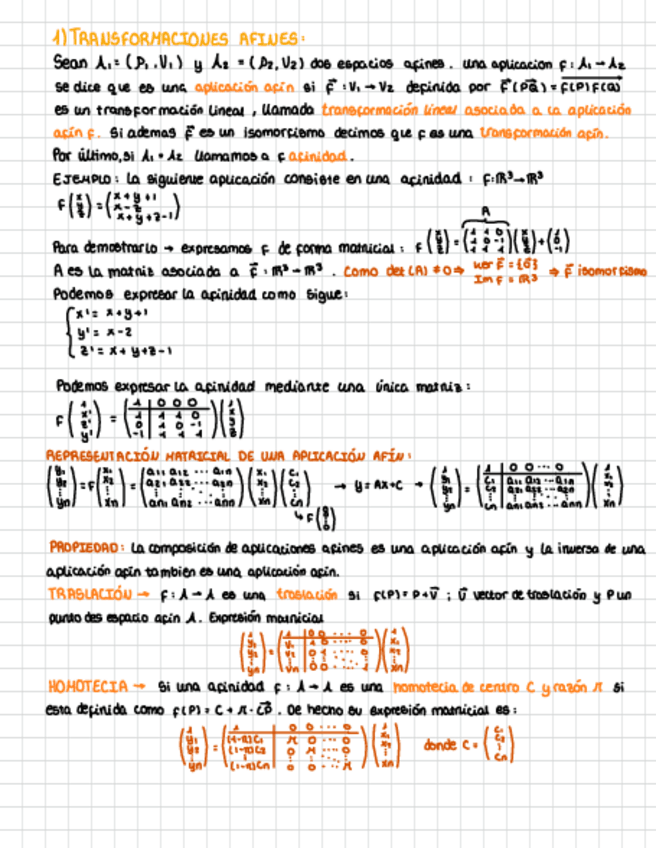 1) TRANSFORMACIONES AFINES:
Sean A₁ = (P₁, V₁) y A₂ = (P₂, V₂) dos espacios afines. una aplicacion f: A₁ → A₂
se dice que es una aplicación afín si f⃗: V₁ → V₂ definida por f⃗(PQ) = f(P)f(Q)
es un transformación lineal, llamada transformación lineal asociada a la aplicación
afín f. Si ademas f⃗ es un isomorfismo decimos que f es una transformación afín.
Por último, si A₁ = A₂ llamamos a f afinidad.
EJEMPLO: la siguiente aplicación consiste en una afinidad: f: ℝ³ → ℝ³
f(x y z) = (x+y+1, x-z, x+y+z-1)
A
Para demostrarlo → expresamos f de forma matricial: f(x y z) = (1 1 0, 1 0 -1, 1 1 1)(x y z) + (1 0 -1)
A es la matriz asociada a f⃗: ℝ³ → ℝ³. Como det(A) ≠ 0 ⇒ ker f⃗ = {0⃗} Im f = ℝ³ ⇒ f⃗ isomorfismo
Podemos expresar la afinidad como sigue:
x' = x+y+1
y' = x-z
z' = x+y+z-1
Podemos expresar la afinidad mediante una única matriz:
REPRESENTACIÓN MATRICIAL DE UNA APLICACIÓN AFÍN:
(y₁ y₂ ⋮ yn) = f(x₁ x₂ ⋮ xn) = (a₁₁ a₁₂ ··· a₁n, a₂₁ a₂₂ ··· a₂n, an₁ an₂ ··· ann)(x₁ x₂ ⋮ xn)(c₁ c₂ ⋮ cn) → y = Ax+C →
PROPIEDAD: la composición de aplicaciones afines es una aplicación afín y la inversa de una
aplicación afín tambien es una aplicación afín.
TRASLACIÓN → f: A → A es una traslación si f(P) = P+v⃗; v⃗ vector de traslación y P un
punto des espacio afín A. Expresión matricial
HOMOTECIA → Si una afinidad f: A → A es una homotecia de centro C y razón r si
esta definida como f(P) = C + r · CP. De hecho su expresión matricial es:
donde C = (c₁ c₂ ⋮ cn)